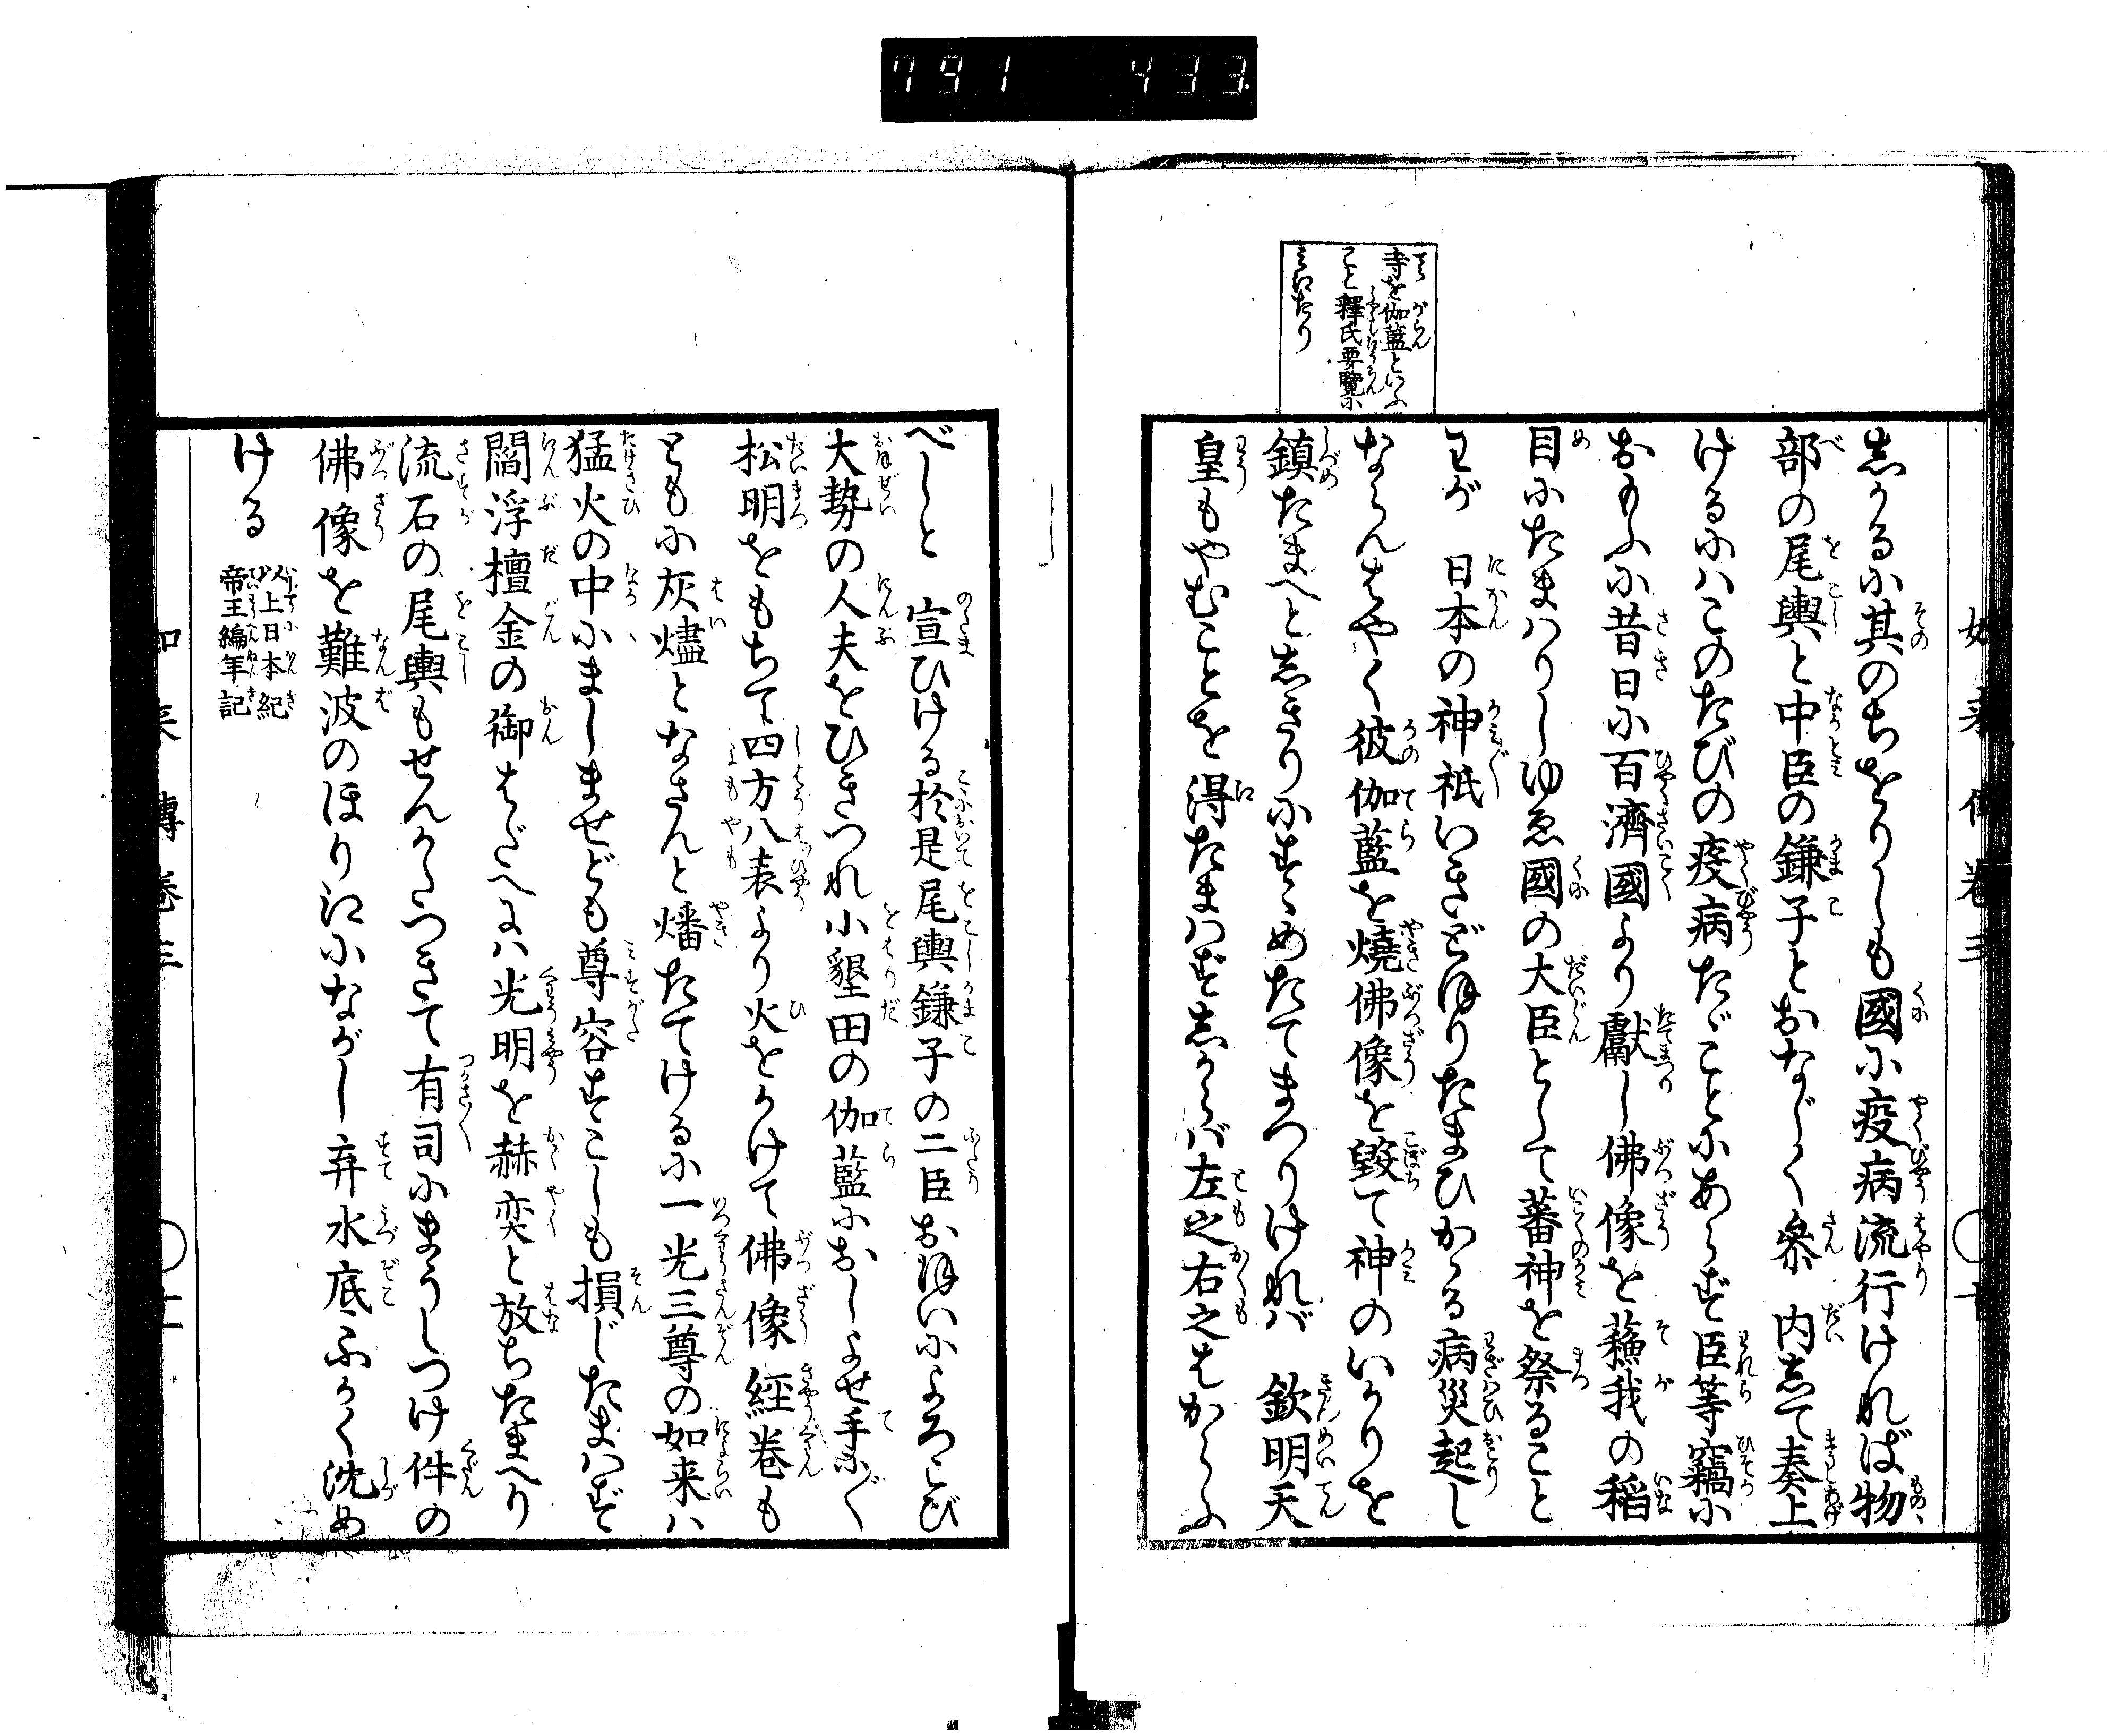 791 433
寺を伽藍といふ
こと釋氏要覽に
みえたり
志かるに其のちをりしも國に疫病流行ければ物
部の尾輿と中臣の鎌子とおなじく參 内志て奏上
けるにハこのたびの疫病たゞことにあらず臣等竊に
おもふに昔日に百濟國より獻し佛像を蘓我の稲
目にたまハりしゆゑ國の大臣として蕃神を祭ること
わが 日本の神祇いきどほりたまひかゝる病災起し
ならんはやく彼伽藍を燒佛像を毀て神のいかりを
鎮たまへと志きりにすゝめたてまつりけれバ 欽明天
皇もやむことを得たまハず志からバ左之右之はからふ
べしと 宣ひける於是尾輿鎌子の二臣おほいによろこび
大勢の人夫をひきつれ小墾田の伽藍におしよせ手に〳〵
松明をもちて四方八表より火をかけて佛像經巻も
ともに灰燼となさんと燔たてけるに一光三尊の如来ハ
猛火の中にましませども尊容すこしも損じたまハず
閻浮檀金の御はだへよハ光明を赫奕と放ちたまへり
流石の尾輿もせんかたつきて有司にまうしつけ件の
佛像を難波のほり江にながし弃水底ふかく沈め
ける
以上日本紀
帝王編年記
如来傳巻三